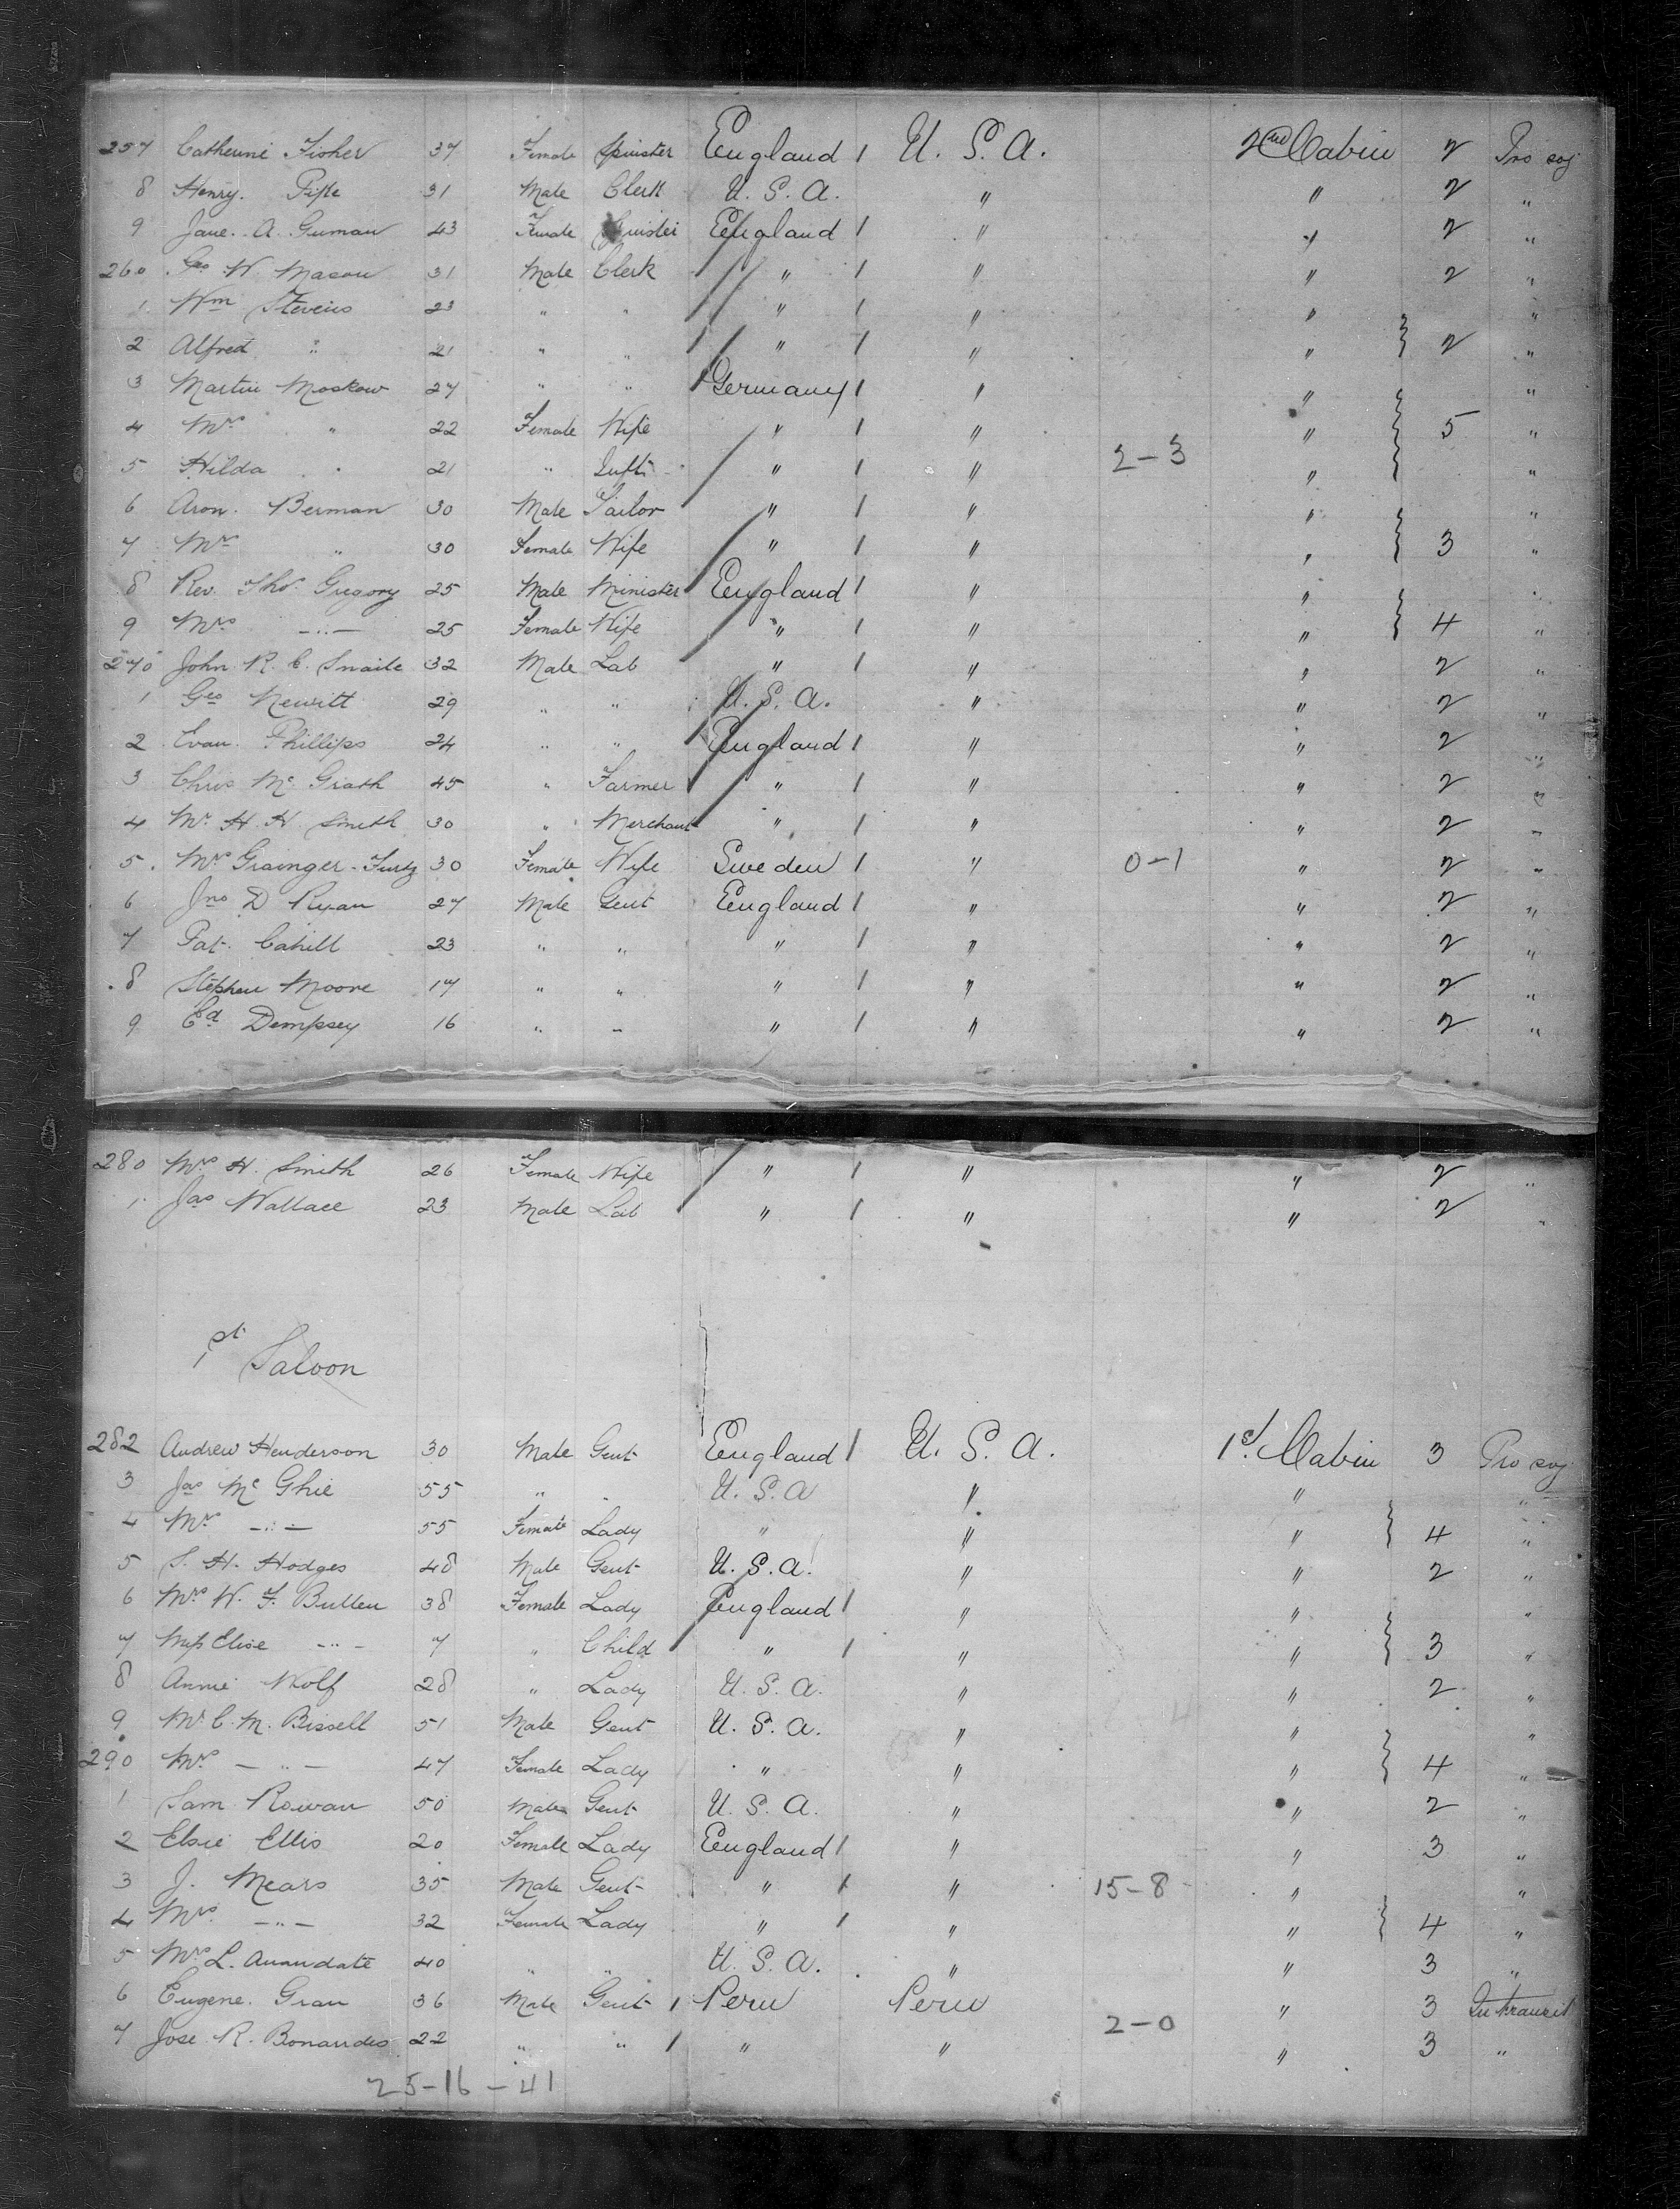 257 Catherine Fisher 37 Female Spinster England / U. S. A. 2nd Cabin 2 Pro soj
8 Henry. 31 Male Clerk U. S. A. " " 2 "
9 Jane. A. 43 Female Spinster England / " " 2 "
260 Geo W. Mason 31 Male Clerk " / " " 2 "
1 Wm Stevens 23 " " " / " " "
2 Alfred " 21 " " " / " " 2 "
3 Martin Moskow 27 " " Germany / " " "
4 Mrs " 22 Female Wife " / " " 5 "
5 Hilda " 21 " " / " 2-3 " "
6 Aron. Berman 30 Male Tailor " / " " "
7 Mrs " 30 Female Wife " / " " 3 "
8 Rev. Thos. Gregory 25 Male Minister England / " " "
9 Mrs -"- 25 Female Wife " / " " 4 "
270 John R. C. Snaite 32 Male Lab " / " " 2 "
1 Geo Hewitt 29 " " U. S. A. " " 2 "
2 Evan. Phillips 24 " " England / " " 2 "
3 Chris Mc Grath 45 " Farmer " / " " 2 "
4 Mr. H. H. Smith 30 " Merchant " / " " 2 "
5. Mrs Grainger- 30 Female Wife Sweden / " 0-1 " 2 "
6 Jno D Ryan 27 Male Gent England / " " 2 "
7 Pat. Cahill 23 " " " / " " 2 "
8 Stephen Moore 17 " " " / " " 2 "
9 Ed Dempsey 16 " " " / " " 2 "
280 Mrs H. Smith 26 Female Wife " / " " 2 "
1 Jas Wallace 23 Male Lab " / " " 2 "
1st Saloon
282 Andrew Henderson 30 Male Gent England / U. S. A. 1st Cabin 3 Pro soj
3 Jas Mc Ghie 55 " " U. S. A " " "
4 Mrs -"- 55 Female Lady " " " 4 "
5 S. H. Hodges 48 Male Gent U. S. A. " " 2 "
6 Mrs W. F. Bullen 38 Female Lady England / " " "
7 Miss Elise -"- 7 " Child " / " " 3 "
8 Annie Wolf 28 " Lady U. S. A. " " 2 "
9 Mr C. M. Bissell 51 Male Gent U. S. A. " " "
290 Mrs -"- 47 Female Lady " " " 4 "
1 Sam Rowan 50 Male Gent U. S. A. " " 2 "
2 Elsie Ellis 20 Female Lady England / " " 3 "
3 J. Mears 35 Male Gent " / " 15-8 " "
4 Mrs. -"- 32 Female Lady " / " " 4 "
5 Mrs L. Anandate 40 " " U. S. A. " " 3 "
6 Eugene. Grau 36 Male Gent / Peru Peru " 3 In transit
7 Jose. R. 22 " " / " " 2-0 " 3 "
25-16-41